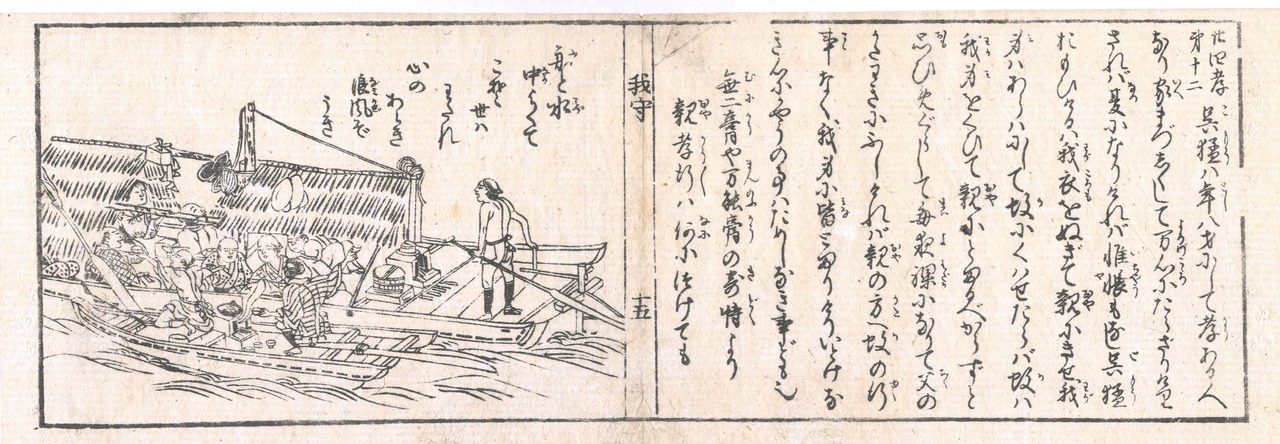 廿四孝
第十二
呉猛八年八才にして孝ある人
なり家まづしくして万心にたらざりけり
されば夏になりけれ共帷帳もなし呉猛
おもひけるは我衣をぬぎて親にきせ我
身はあらはにして蚊にくはせたらば蚊は
我身をくひて親にとまるべからずと
思ひめぐらして毎夜裸になりて父の
かたはらにふしければ親の方へ蚊の行
事なく我身に皆とまりけりいとけな
き心にかやうの事はためしなき事ども也
無二膏や万能膏の奇特より
親孝行は何につけても
我守
十五
舟と水
中よくて
こそ
世は
わたれ
心の
あらき
浪風ぞ
うき